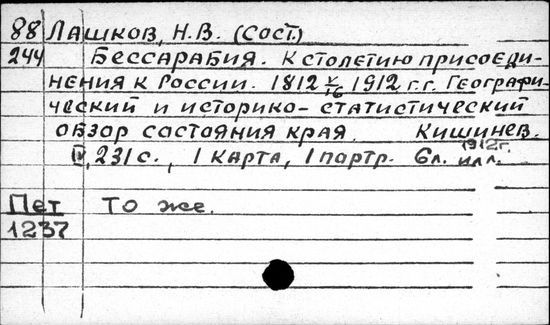 88 Лашков, Н.В. (Сост.)
244 Бессарабия. К столетию присоеди-
нения к России. 1812 V/16 1912 г.г. Географи-
ческий и историко-статистический
обзор состояния края. Кишинев.
1912г.
IV, 231 с., 1 карта, 1 портр. 6л. илл.
Пет То же.
1237